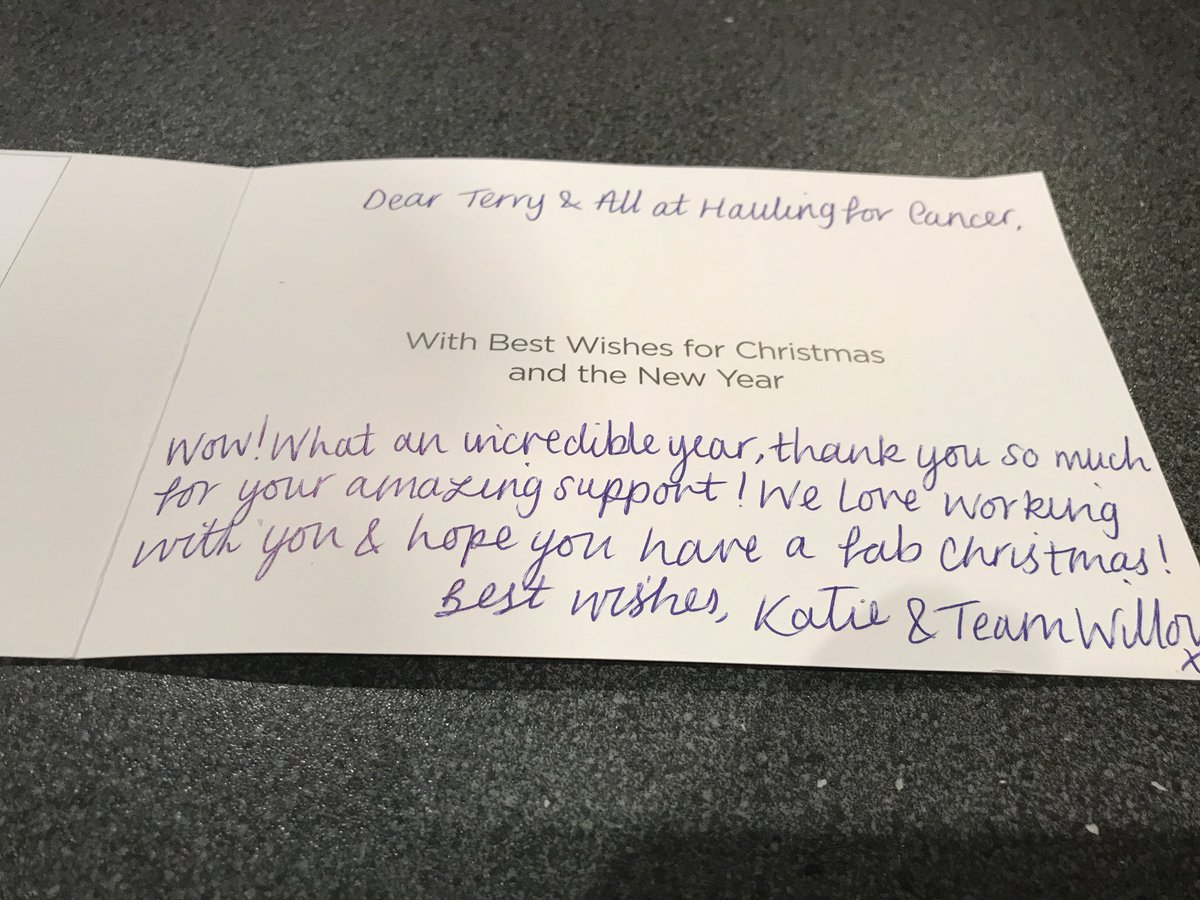 Dear Terry & All at Hauling for Cancer,
With Best Wishes for Christmas
and the New Year
Wow! What an incredible year, thank you so much
for your amazing support! We love working
with you & hope you have a fab Christmas!
Best wishes, Katie & Team Willow
x